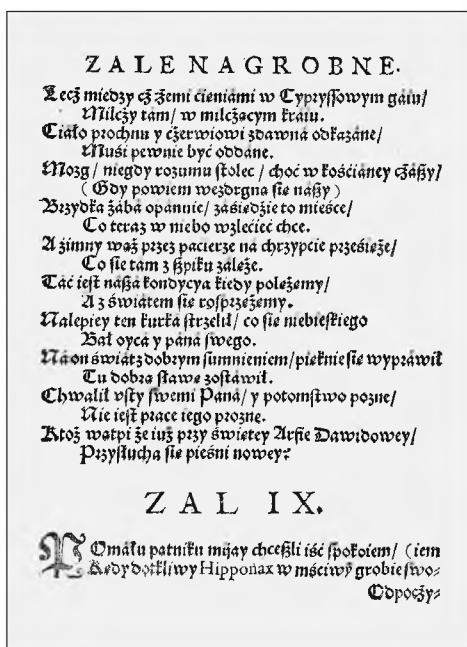 ZALE NAGROBNE.
Lecż miedzy cż żemi ćieniámi w Cypryſſowym gáiu/
Milcży tám/ w milcżącym kráiu.
Ciáło prochu y cżerwiowi zdawná odkazáne/
Muśi pewnie być oddáne.
Mozg/ niegdy rozumu ſtolec/ choć w kośćiáney cżáßy/
(Gdy powiem wezdrgna ſie náßy)
Brzydka żábá opánuie/ záśiędżie to mieśce/
Co teraz w niebo wzlećieć chce.
A żimny wąż przez páćierze ná chrzypćie prześięże/
Co ſie tám z ßpiku záleże.
Táć ieſt náßá kondycya kiedy poleżemy/
A z świátem ſie roſprzężemy.
Nalepiey ten kurká ſtrzelił/ co ſie niebieſkiego
Bał oycá y páná ſwego.
Ná on świát z dobrym ſumnieniem/ pieknie ſie wypráwił
Tu dobrą ſławę zoſtáwił.
Chwalił vſty ſwemi Páná/ y potomſtwo pozne/
Nie ieſt prace iego prozne.
Ktoż wątpi że iuż przy świętey Arfie Dawidowey/
Przyſłucha ſie pieśni nowey?
ZAL IX.
POmáłu patniku mijay chceßli iść ſpokoiem/ (iem
Kędy dotkliwy Hipponax w mśćiwy grobie ſwo⸗
Odpocży⸗